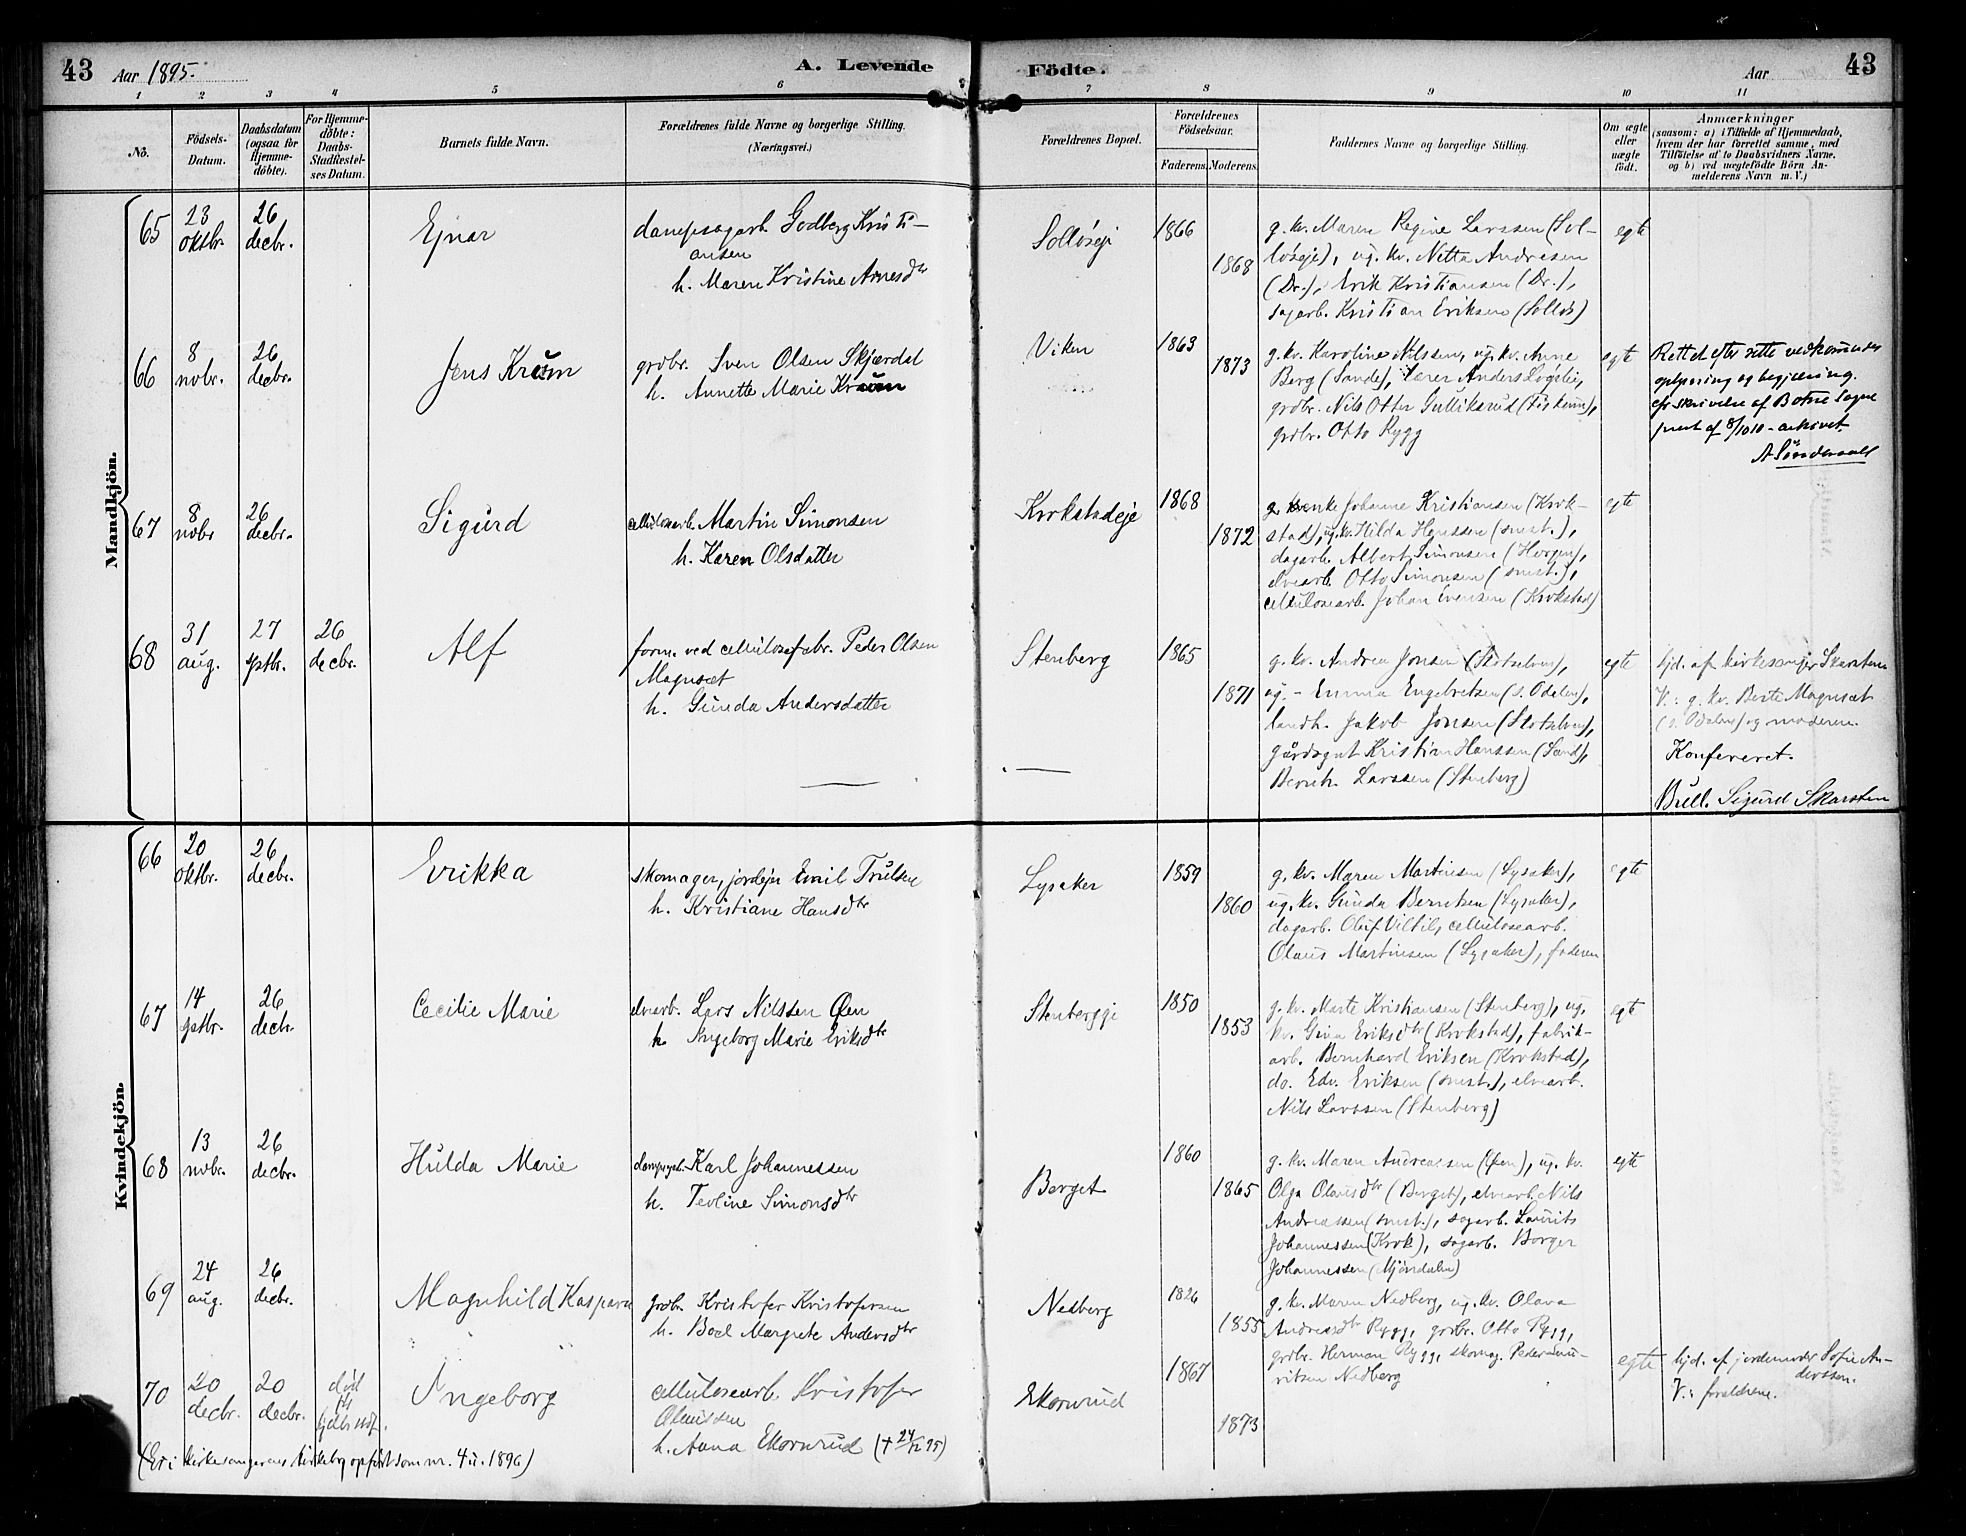 43 Aar 1895. A. Levende Födte. Aar 43
1 2 3 4 5 6 7 8 9 10 11
No.
Födsels-
Datum.
Daabsdatum
(ogsaa for
Hjemme-
döbte).
For Hjemme-
döbte:
Daabs-
Stadfæstel-
ses Datum.
Barnets fulde Navn.
Forældrenes fulde Navne og borgerlige Stilling.
(Næringsvei.)
Forældrenes Bopæl.
Forældrenes
Födselsaar.
Faderens. Moderens.
Faddernes Navne og borgerlige Stilling.
Om ægte
eller
uægte
födt.
Anmærkninger
(saasom: a) i Tilfælde af Hjemmedaab,
hvem der har forrettet samme, med
Tilföielse af to Daabsvidners Navne,
og b) ved uegtefödte Börn An-
melderens Navn m. V.)
Mandkjön.
65
23
oktbr.
26
decbr.
Ejnar
dampsagarb. Godberg Kristi-
ansen
h. Maren Kristine Arnesdtr
Solløseje
1866
1868
g. kv. Maren Regine Larssen (Sol-
løseje), ug. kv. Netta Andresen
(Dr.), Erik Kristiansen (Dr.),
sagarb. Kristian Eriksen (Solløs)
egte
66
8
novbr.
26
decbr.
Jens Krum
grdbr. Sven Olsen Skjærdal
h. Annette Marie Krum
Viken
1863
1873
g. kv. Karoline Nilssen, ug. kv. Anne
Berg (Sande), lærer Anders Løgslie,
grdbr. Nils Otter Gulliksrud (Fiskum),
grdbr. Otto Rygg
egte
Rettet efter rette vedkommendes
oplysning og begjæring.
cfr skrivelse af Botne sogne
prest af 8/10 10 - arkivet.
67
8
novbr
26
decbr.
Sigurd
cellulosearb. Martin Simonsen
h. Karen Olsdatter
Krokstadeje
1868
1872
g. kv. enke Johanne Kristiansen (Krok-
stad), ug. kv. Hilda Hanssen (smst.),
dagarb. Albert Simonsen (Horgen),
elvearb. Otto Simonsen (smst.),
cellulosearb. Johan Evensen (Krokstad)
egte
68
31
aug.
27
sptbr.
26
decbr.
Alf
form. ved cellulosefabr. Peder Olsen
Magnsæt
h. Gunda Andersdatter
Stenberg
1865
1871
g. kv. Andrea Jonsen (Skotselven),
ug. - Emma Engebretsen (s. Odalen),
landh. Jakob Jonsen (Skotselven),
gårdsgut Kristian Hanssen (Sand),
Bernh. Larssen (Stenberg)
egte
hjd. af kirkesanger Skarsten
V.: g. kv. Berte Magnsæt
(s. Odalen) og moderen.
Konfereret.
Bull. Sigurd Skarsten
Kvindekjön.
66
20
oktbr.
26
decbr.
Erikka
skomager, jordejer Emil Trulsen
h. Kristiane Hansdtr
Lysaker
1859
1860
g. kv. Maren Martinsen (Lysaker),
ug. kv. Gunda Berntsen (Lysaker),
dagarb. Oluf Viltil, cellulosearb.
Olaus Martinsen (Lysaker), faderen
egte
67
14
sptbr.
26
decbr.
Cecilie Marie
elvearb. Lars Nilssen Øen
h. Ingeborg Marie Eriksdtr
Stenbergeje
1850
1853
g. kv. Marte Kristiansen (Stenberg), ug.
kv. Gina Eriksdtr (Krokstad), fabrik-
arb. Bernhard Eriksen (Krokstad),
do. Edv. Eriksen (smst.), elvearb.
Nils Larssen (Stenberg)
egte
68
13
novbr.
26
decbr.
Hulda Marie
Karl Johannessen
h. Teoline Simonsdtr
Berget
1860
1865
g. kv. Maren Andreassen (Øen), ug. kv.
Olga Olausdtr (Berget), elvearb. Nils
Andreassen (smst.), sagarb. Laurits
Johannessen (Krok), sagarb. Borger
Johannessen (Mjøndalen)
egte
69
24
aug.
26
decbr.
Magnhild Kaspara
grdbr. Kristofer Kristofersen
h. Boel Margrete Andersdtr
Nedberg
1826
1855
g. kv. Maren Nedberg, ug. kv. Olava
Andreasdtr Rygg, grdbr. Otto Rygg,
grdbr. Herman Rygg, skomag. Peder Lau-
ritsen Nedberg
70
20
decbr.
20
decbr.
død
før
Ingeborg
cellulosearb. Kristofer
Olaussen
h. Anna Ekornrud († 24/12 95)
Ekornrud
1867
1873
egte
hjd. af jordemoder Sofie An-
derssen.
V.: forældrene.
(Er i kirkesangerens kirkebog opført som nr. 4 i 1896)